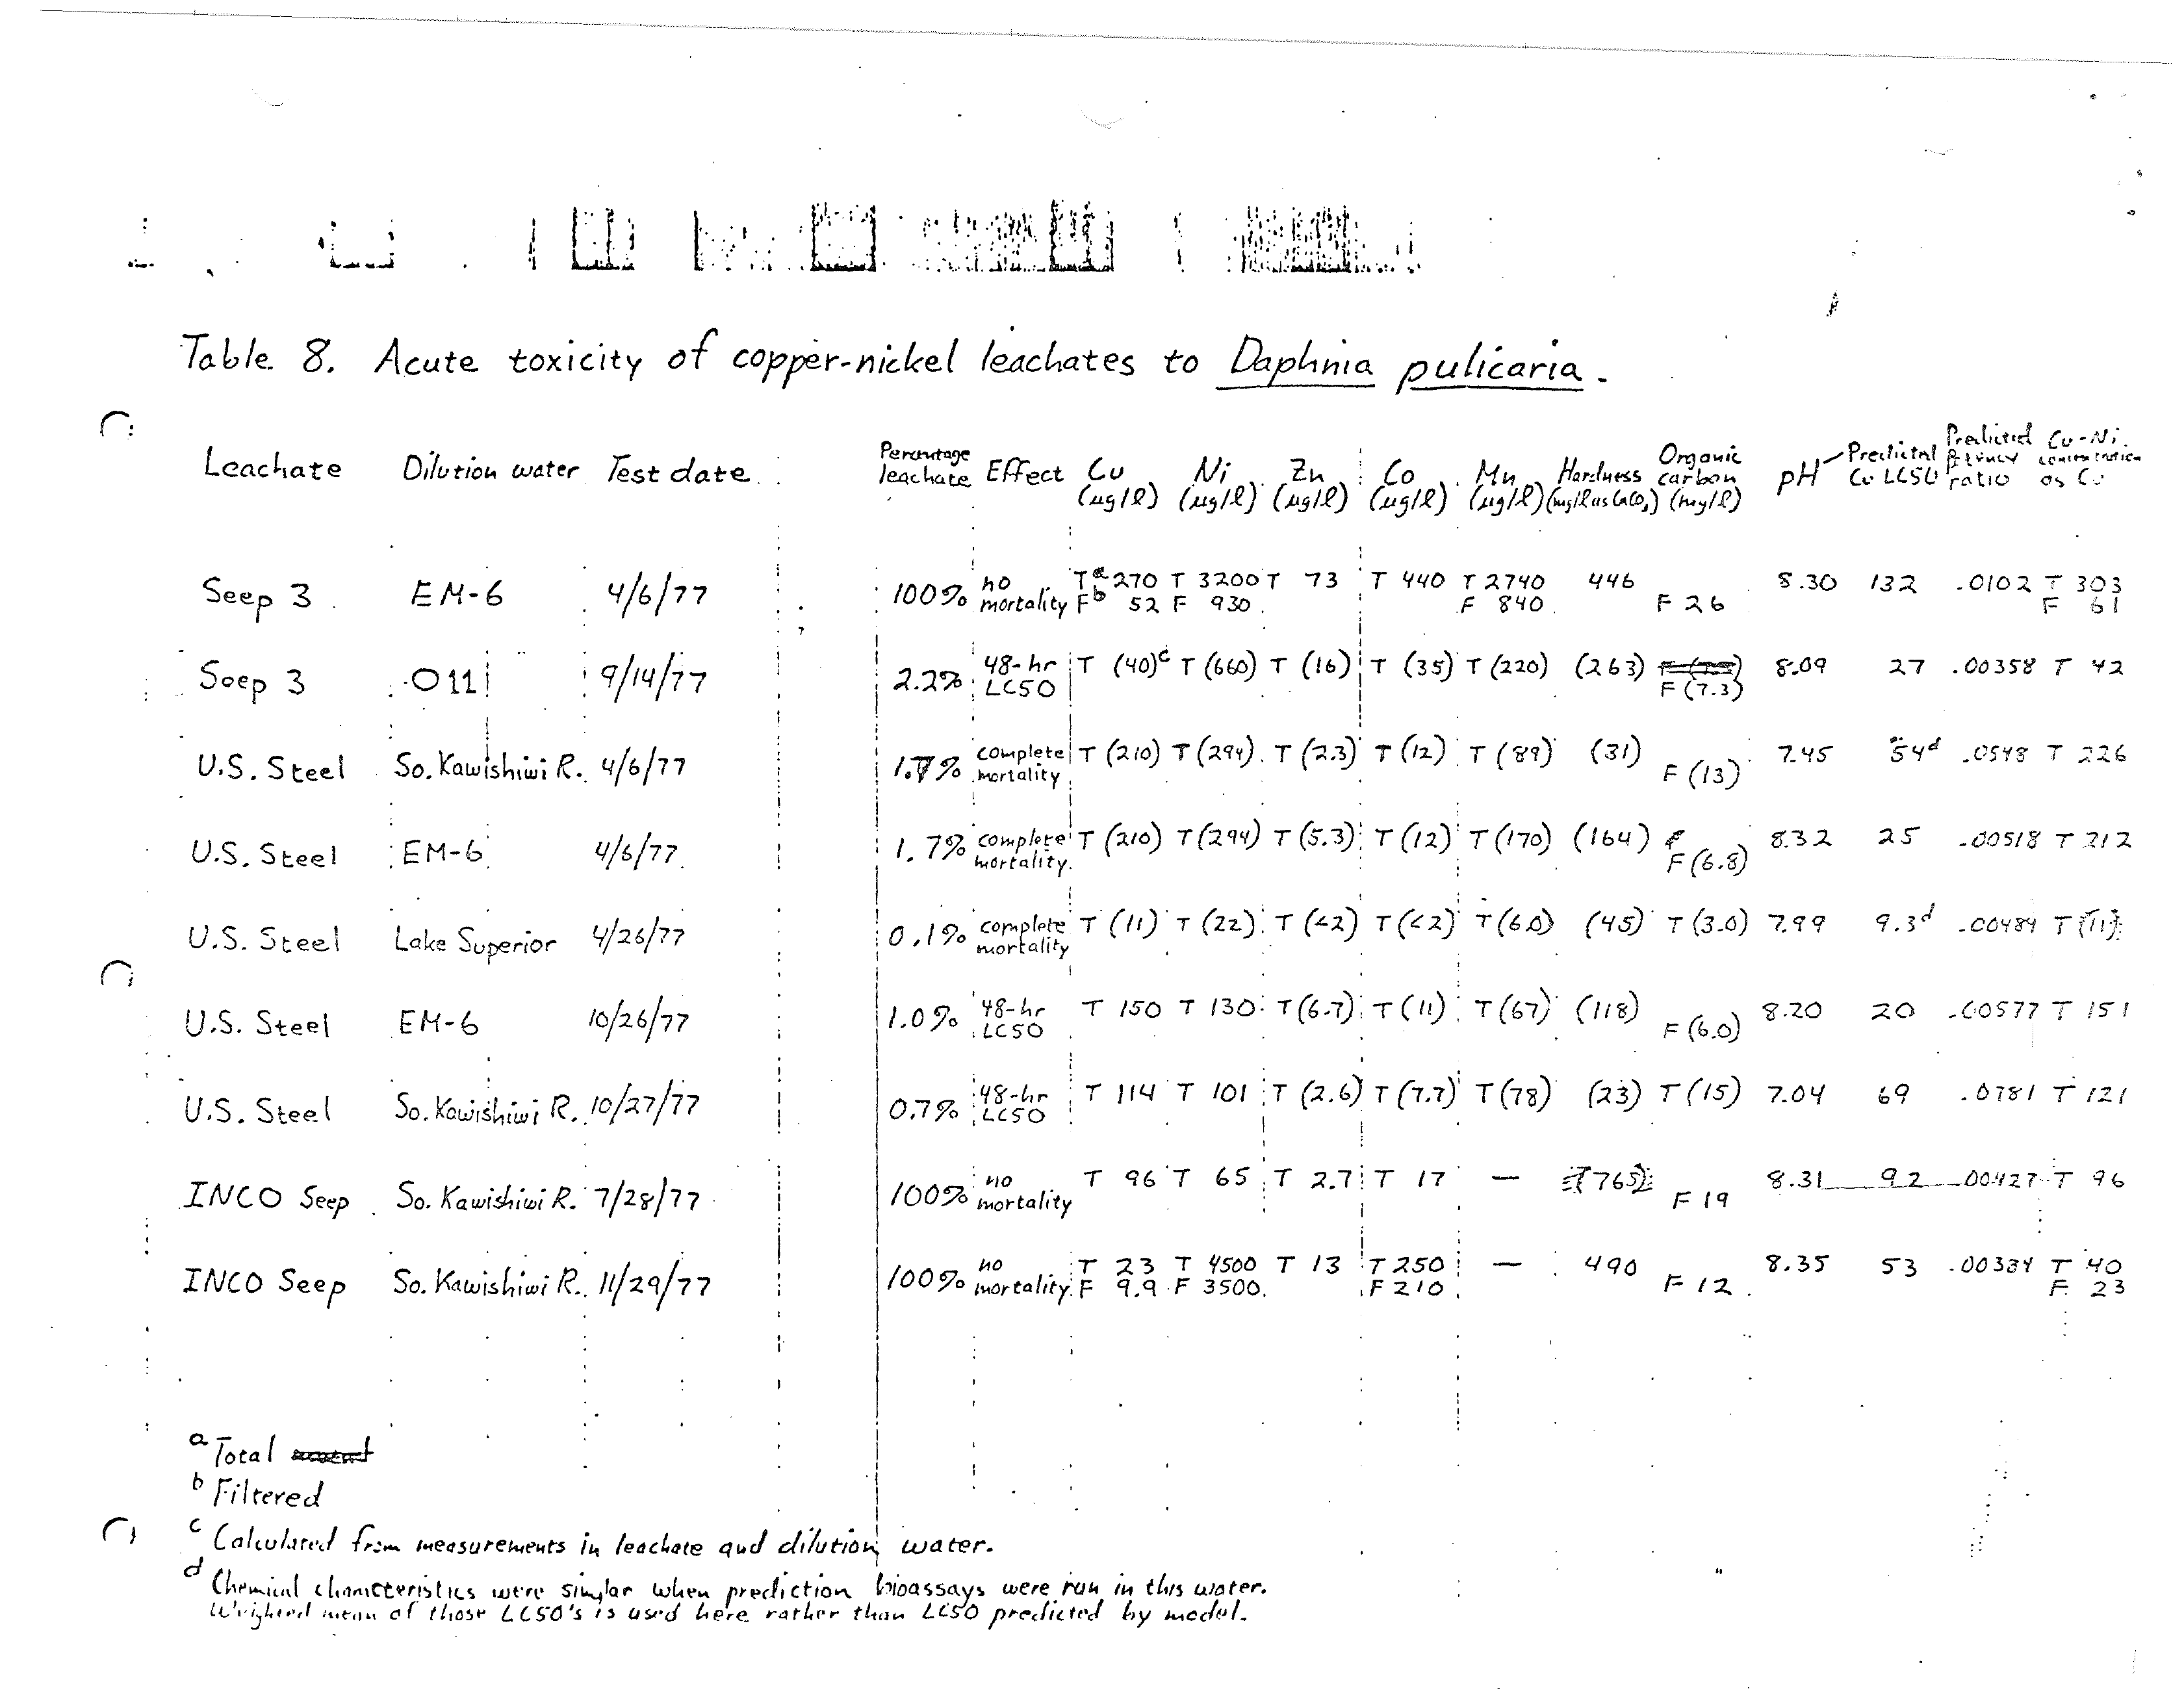 Table 8. Acute toxicity of copper-nickel leachates to Daphnia pulicaria.
Leachate Dilution water Test date Percentage leachate Effect Cu (µg/l) Ni (µg/l) Zn (µg/l) Co (µg/l) Mn (µg/l) Hardness (mg/l as CaCO3) Organic carbon (mg/l) pH Predicted Cu LC50 Predicted ratio Cu-Ni concentration as Cu
Seep 3 EM-6 4/6/77 100% no mortality Tᵃ 270 T 3200 T 73 T 440 T 2740 446 8.30 132 .0102 T 303
Fᵇ 52 F 930 F 840 F 26 F 61
Seep 3 011 9/14/77 2.2% 48-hr LC50 T (40)ᶜ T (660) T (16) T (35) T (220) (263) F (7.3) 8.09 27 .00358 T 42
U.S. Steel So. Kawishiwi R. 4/6/77 1.7% complete mortality T (210) T (294) T (2.3) T (12) T (89) (31) F (13) 7.45 54ᵈ .0548 T 226
U.S. Steel EM-6 4/6/77 1.7% complete mortality T (210) T (294) T (5.3) T (12) T (170) (164) F (6.8) 8.32 25 .00518 T 212
U.S. Steel Lake Superior 4/26/77 0.1% complete mortality T (11) T (22) T (<2) T (<2) T (6.0) (45) T (3.0) 7.99 9.3ᵈ .00484 T (11)
U.S. Steel EM-6 10/26/77 1.0% 48-hr LC50 T 150 T 130 T (6.7) T (11) T (67) (118) F (6.0) 8.20 20 .00577 T 151
U.S. Steel So. Kawishiwi R. 10/27/77 0.7% 48-hr LC50 T 114 T 101 T (2.6) T (7.7) T (78) (23) T (15) 7.04 69 .0781 T 121
INCO Seep So. Kawishiwi R. 7/28/77 100% no mortality T 96 T 65 T 2.7 T 17 — 765 F 19 8.31 92 .00427 T 96
INCO Seep So. Kawishiwi R. 11/29/77 100% no mortality T 23 T 4500 T 13 T 250 — 490 8.35 53 .00384 T 40
F 9.9 F 3500 F 210 F 12 F 23
ᵃ Total
ᵇ Filtered
ᶜ Calculated from measurements in leachate and dilution water.
ᵈ Chemical characteristics were similar when prediction bioassays were run in this water.
Weighted mean of those LC50's is used here rather than LC50 predicted by model.